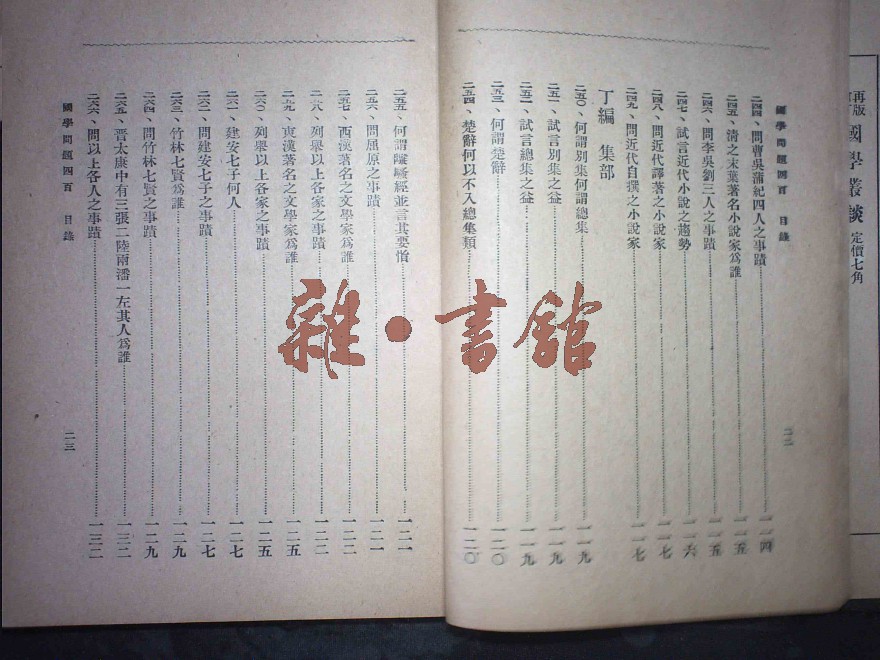 再版
國學叢談 定價七角
國學問題四百 目錄
二二
二四四、問曹吳蒲紀四人之事蹟 一一四
二四五、清之末葉著名小說家爲誰 一一五
二四六、問李吳劉三人之事蹟 一一五
二四七、試言近代小說之趨勢 一一六
二四八、問近代譯著之小說家 一一七
二四九、問近代自撰之小說家 一一七
丁編 集部
二五〇、何謂別集何謂總集 一一九
二五一、試言別集之益 一一九
二五二、試言總集之益 一一九
二五三、何謂楚辭 一二〇
二五四、楚辭何以不入總集類 一二〇
二五五、何謂離騷經並言其要恉 一二一
二五六、問屈原之事蹟 一二一
二五七、西漢著名之文學家爲誰 一二二
二五八、列舉以上各家之事蹟 一二二
二五九、東漢著名之文學家爲誰 一二五
二六〇、列舉以上各家之事蹟 一二五
二六一、建安七子何人 一二七
二六二、問建安七子之事蹟 一二七
二六三、竹林七賢爲誰 一二九
二六四、問竹林七賢之事蹟 一二九
二六五、晉太康中有三張二陸兩潘一左其人爲誰 一三二
二六六、問以上各人之事蹟 一三二
國學問題四百 目錄
二三
雜·書館